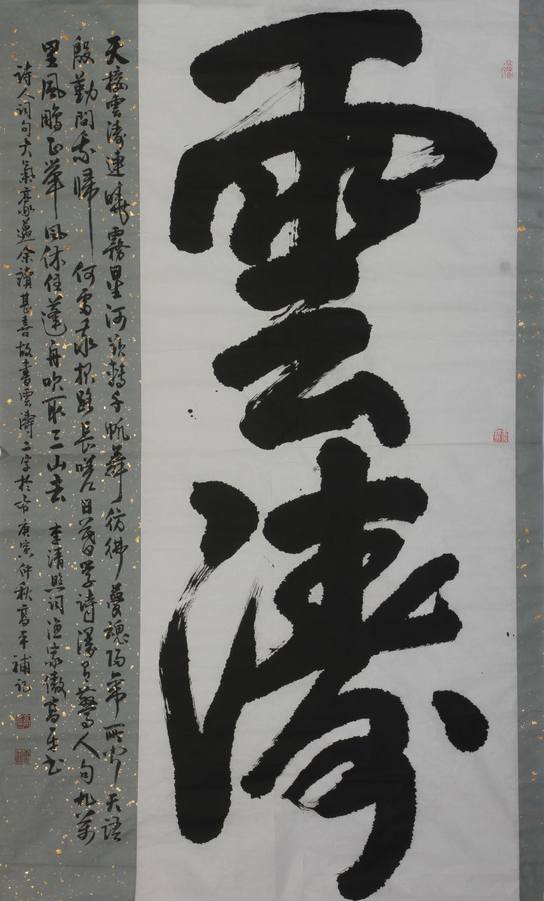 雲濤
天接雲濤連曉霧星河欲轉千帆舞彷彿夢魂歸帝所聞天語
殷勤問我歸何處我報路長嗟日暮學詩謾有驚人句九萬
里風鵬正舉風休住蓬舟吹取三山去 李清照詞漁家傲高平书
詩人詞句大氣豪邁余讀甚喜故書雲濤二字於帛庚寅仲秋高平補記